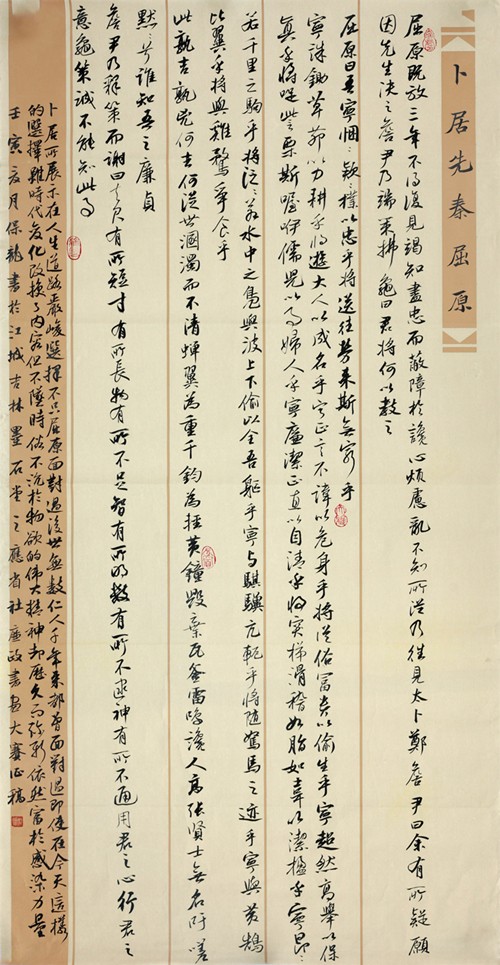 卜居先秦屈原
屈原既放三年不得復見竭知盡忠而蔽障於讒心煩慮亂不知所從乃往見太卜鄭詹尹曰余有所疑願
因先生決之詹尹乃端策拂龜曰君將何以教之
屈原曰吾寧悃々款々樸以忠乎將送往勞來斯無窮乎
寧誅鋤草茅以力耕乎將遊大人以成名乎寧正言不諱以危身乎將從俗富貴以偷生乎寧超然高舉以保
真乎將哫訾栗斯喔咿儒兒以事婦人乎寧廉潔正直以自清乎將突梯滑稽如脂如韋以潔楹乎寧昂々
若千里之駒乎將泛々若水中之鳧與波上下偷以全吾軀乎寧與騏驥亢軛乎將隨駑馬之迹乎寧與黃鵠
比翼乎將與雞鶩爭食乎
此孰吉孰兇何去何從世溷濁而不清蟬翼為重千鈞為輕黃鐘毀棄瓦釜雷鳴讒人高張賢士無名吁嗟
默々兮誰知吾之廉貞
詹尹乃釋策而謝曰夫尺有所短寸有所長物有所不足智有所不明數有所不逮神有所不通用君之心行君之
意龜策誠不能知此事
卜居所展示在人生道路嚴峻選擇不只屈原面對過後世無數仁人千年來都曾面對過即使在今天這樣
的選擇雖時代變化改換了內容但不墮時俗不沉於物欲的偉大精神却歷久而彌新依然富於感染力量
壬寅亥月保龍書於江城吉林墨石堂之應省社廉政書畫大賽征稿